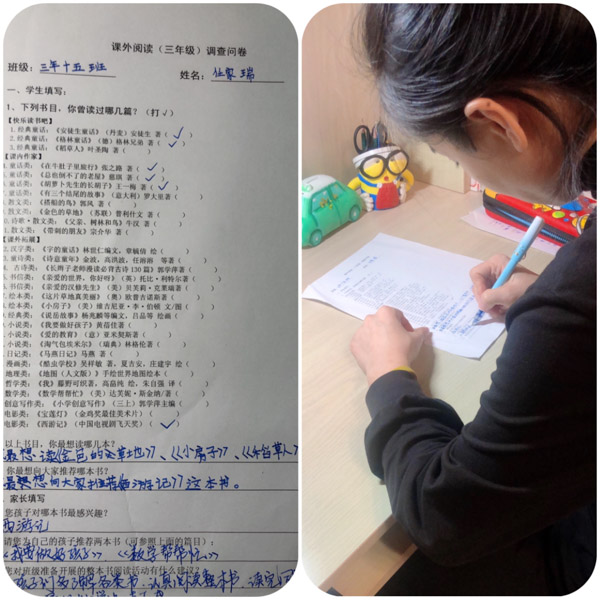 课外阅读（三年级）调查问卷
班级：三年十五班 姓名：家瑞
一、学生填写：
1、下列书目，你曾读过哪几篇？（打√）
【快乐读书吧】
1.经典童话：《安徒生童话》（丹麦）安徒生 著（√）
2.经典童话：《格林童话》（德）格林兄弟 著（√）
3.经典童话：《稻草人》叶圣陶 著（ ）
【课内作家】
童话类：《在牛肚子里旅行》张之路 著（√）
童话类：《总也倒不了的老屋》慈琪 著（√）
童话类：《胡萝卜先生的长胡子》王一梅 著（√）
童话类：《有三个结尾的故事》（意大利）罗大里著（ ）
散文类：《搭船的鸟》郭风 著（ ）
散文类：《金色的草地》（苏联）普利什文 著（ ）
诗歌·散文类：《父亲、树林和鸟》牛汉 著（ ）
散文类：《带刺的朋友》宗介华 著（ ）
【课外拓展】
汉字类：《字的童话》林世仁编文，章毓倩 绘（ ）
童诗类：《诗意童年》金波、高洪波、任溶溶 等著（ ）
古诗类：《长胖子老师漫读必背古诗130篇》郭学萍著（ ）
书信类：《亲爱的世界，你好呀》（英）托比·利特尔著（ ）
书信类：《亲爱的汉修先生》（美）贝芙莉·克莱瑞著（ ）
绘本类：《这片草地真美丽》（奥）欧普吉诺斯著（ ）
绘本类：《小房子》（美）维吉尼亚·李·伯顿 文/图（ ）
经典类：《说岳故事》杨兆麟等编文，吕品等 绘画（ ）
小说类：《我要做好孩子》黄蓓佳著（ ）
小说类：《爱的教育》（意）亚米契斯著（ ）
小说类：《淘气包埃米尔》（瑞典）林格伦著（ ）
日记类：《马燕日记》马燕 著（ ）
漫画类：《酷虫学校》吴祥敏 著，夏吉安，庄建宇 绘（ ）
地理类：《地图（人文版）》手绘世界地图绘本（ ）
哲学类：《我》藤野可织著，高畠纯 绘，朱自强 译（ ）
数学类：《数学帮帮忙》（美）达芙妮·斯金纳/著（ ）
创意写作类：《小学创意写作》（三上）郭学萍主编（ ）
电影类：《宝莲灯》（金鸡奖最佳美术片）（ ）
电影类：《西游记》（中国电视剧飞天奖）（√）
以上书目，你最想读哪几本？
最想读《金色的草地》、《小房子》、《稻草人》
你最想向大家推荐哪本书？
最想向大家推荐《西游记》这本书。
家长填写
您孩子对哪本书最感兴趣？
西游记
请您为自己的孩子推荐两本书（可参照上面的篇目）：
《我要做好孩子》《数学帮帮忙》
您对班级准备开展的整本书阅读活动有什么建议？